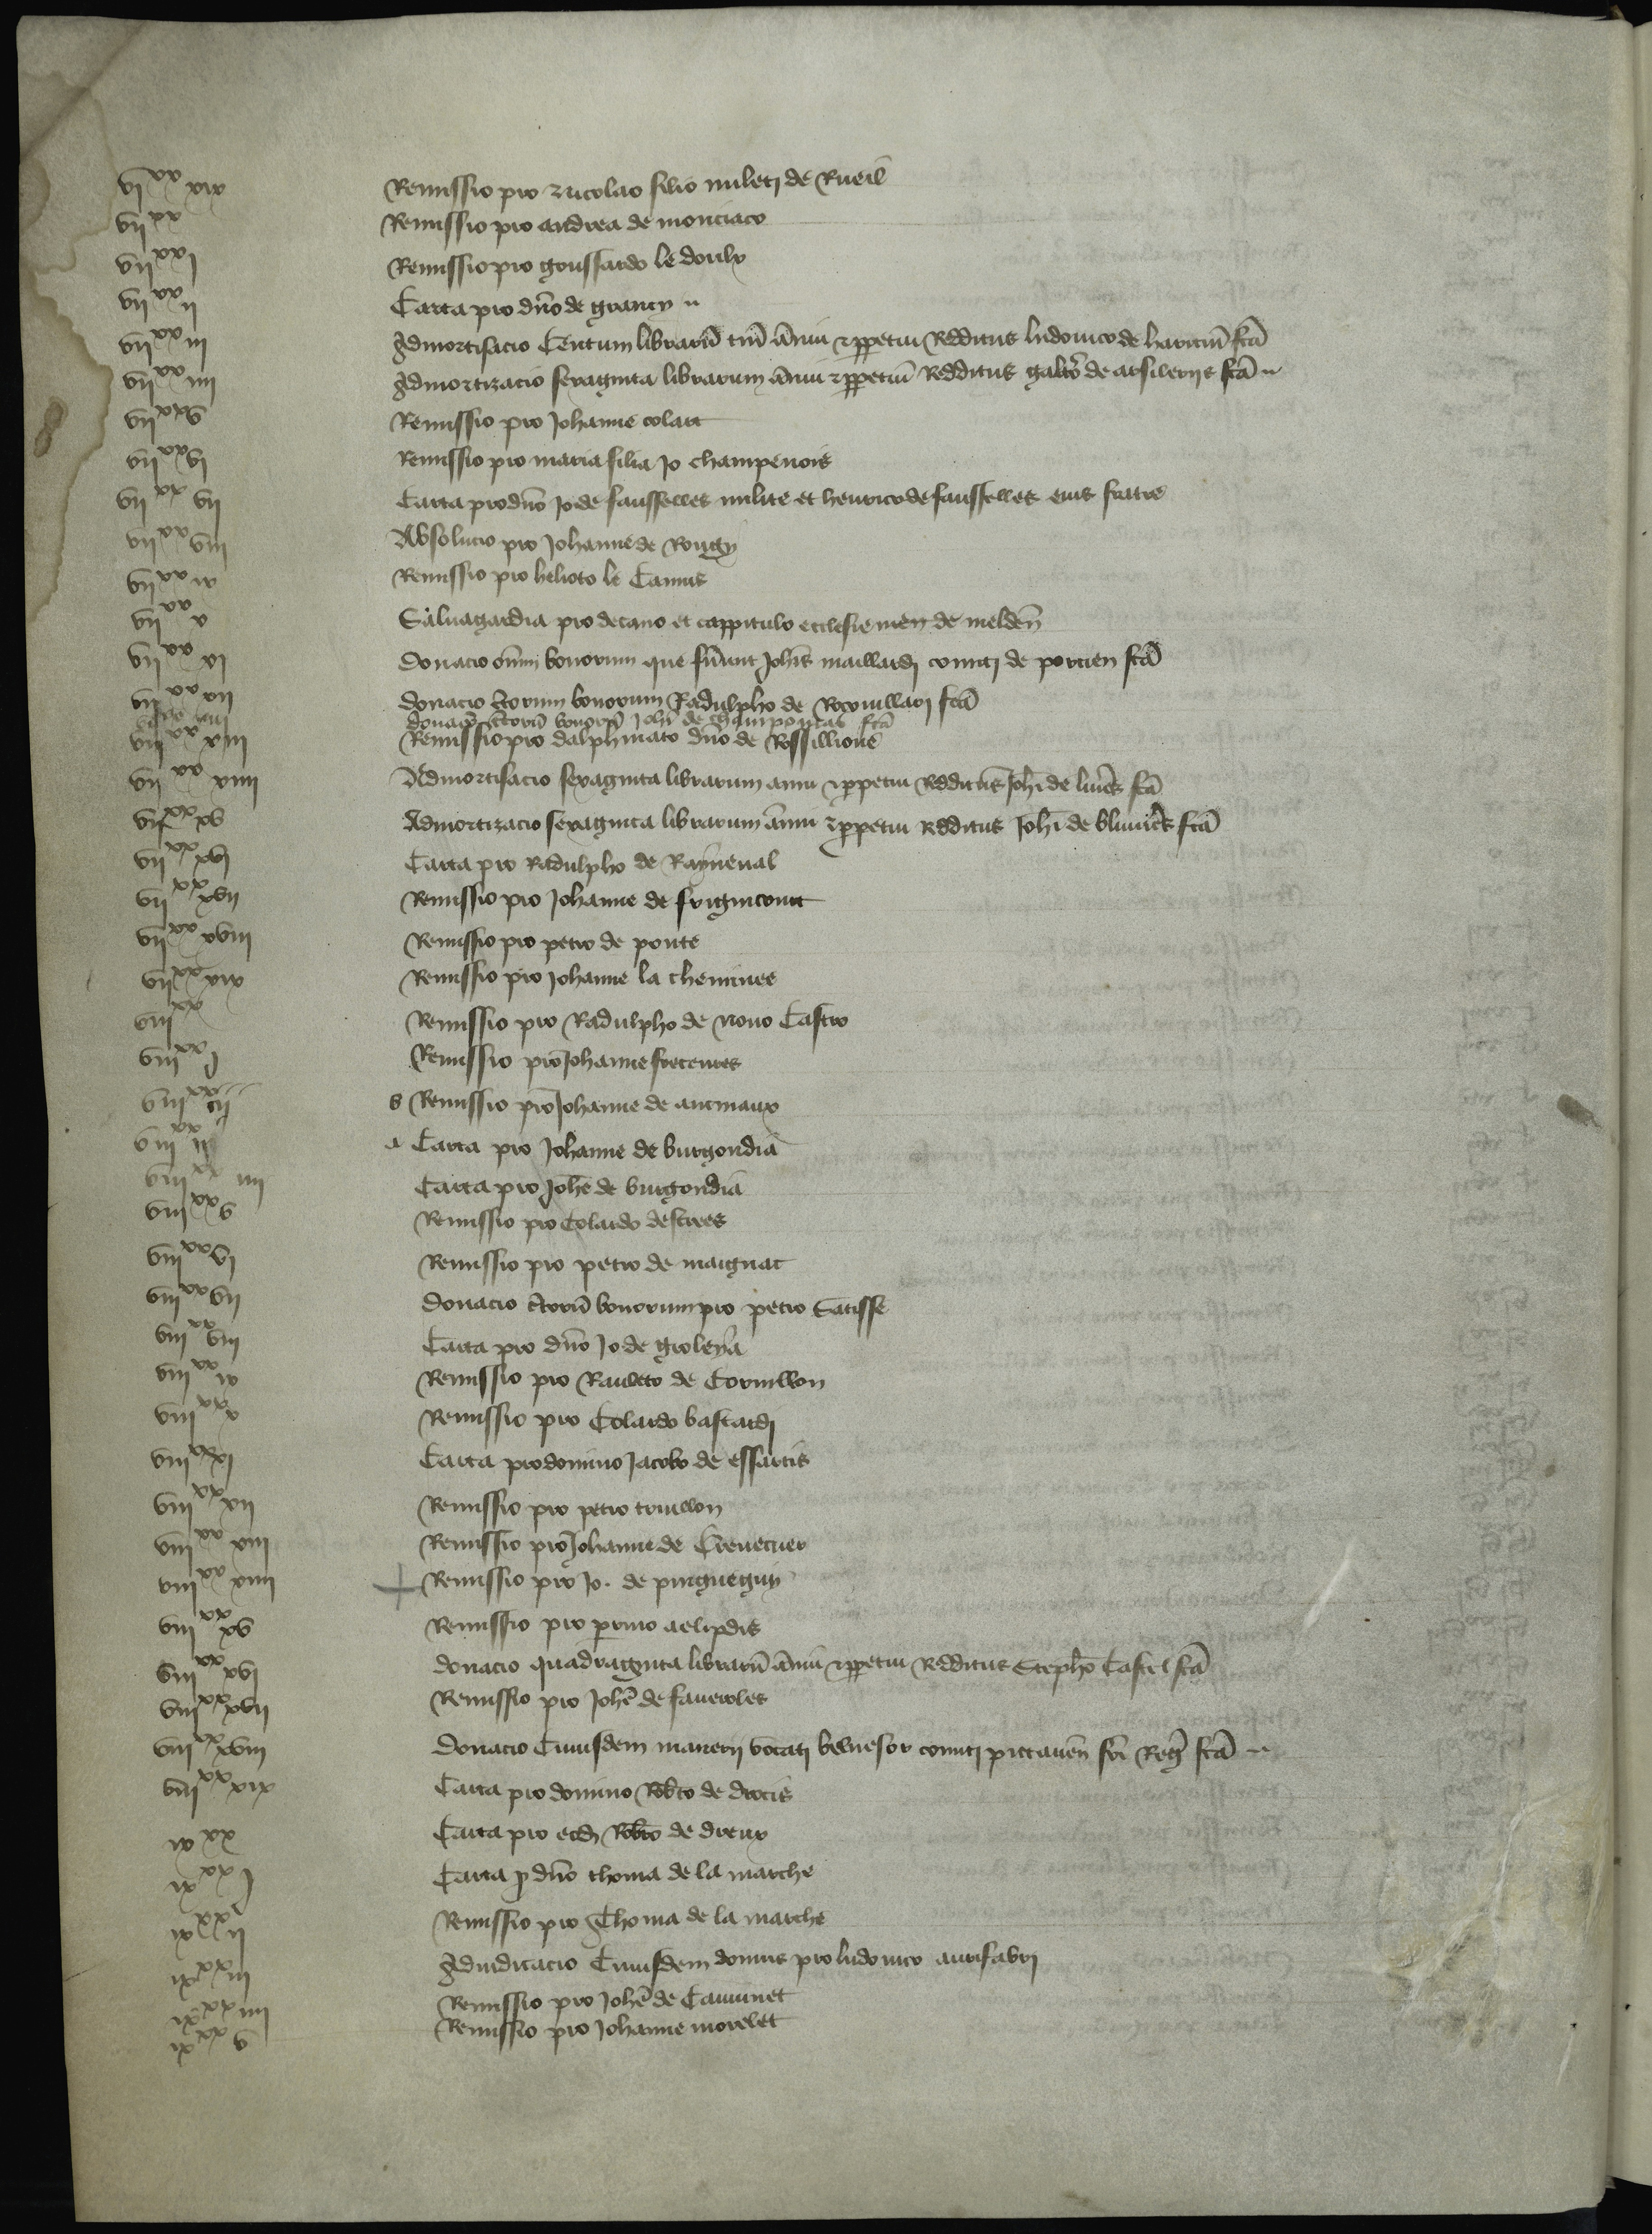 vi xx xix Remissio pro Nicolao filio mileti de Rueil
vii xx Remissio pro andrea de monciaco
vii xx i Remissio pro goussardo le doulx
vii xx ii Carta pro dno de grancy
vii xx iii Admortisacio Centum librarum annui et perpetui Redditus ludovico de fca
vii xx iiii Admortizacio sexaginta librarum annui et perpetui Redditus de fca
vii xx v Remissio pro Johanne colart
vii xx vi Remissio pro maria filia Jo champenois
vii xx vii Carta pro dno Jo de faussewes milite et henrico de faussewes eius fratre
vii xx viii Absolucio pro Johanne de Rougy
vii xx ix Remissio pro helioto le Camus
vii xx x Salvagardia pro decano et cappitulo ecclesie de melden
vii xx xi Donacio omnium bonorum que fuerunt Johis maillardi comiti de porcien fca
vii xx xii donacio ctorum bonorum Radulpho de fca
donacio ctorum bonorum Johi de fca
vii xx xiii Remissio pro dalphinato dno de Rossillione
vii xx xiiii Admortisacio sexaginta librarum annui et perpetui Redditus Johi de fca
vii xx xv Admortizacio sexaginta librarum annui et perpetui Redditus Johi de fca
vii xx xvi Carta pro Radulpho de Rayneval
vii xx xvii Remissio pro Johanne de frignicourt
vii xx xviii Remissio pro petro de ponte
vii xx xix Remissio pro Johanne la cheminee
viii xx Remissio pro Radulpho de Novo Castro
viii xx i Remissio pro Johanne
viii xx ii b Remissio pro Johanne de
viii xx a Carta pro Johanne de burgondia
viii xx iiii Carta pro Johe de burgondia
viii xx v Remissio pro Colardo destrees
viii xx vi Remissio pro petro de maignac
viii xx vii Donacio ctorum bonorum pro petro Satisse
viii xx viii Carta pro dno Jo de groleya
viii xx ix Remissio pro Rauleto de Cornillon
viii xx x Remissio pro Colardo bastardi
viii xx xi Carta pro domino Jacobo de essartis
viii xx xii Remissio pro petro
viii xx xiii Remissio pro Johanne de Crevecuer
viii xx xiiii Remissio pro Jo. de pinguegny
viii xx xv Remissio pro perrino aelipdis
viii xx xvi donacio quadraginta librarum annui et perpetui Redditus Stepho Castel fca
viii xx xvii Remissio pro Johe de faveroles
viii xx xviii Donacio Cuiusdem manerii vocati comiti pictaven fri Reg fca
viii xx xix Carta pro domino Robto de drocis
ix xx Carta pro eod Robto de dreux
ix xx i Carta p dno thoma de la marche
ix xx ii Remissio pro Thoma de la marche
ix xx iii Adiudicacio Cuiusdem domus pro ludovico aurifabri
ix xx iiii Remissio pro Johe de Caumet
ix xx v Remissio pro Johanne morelet